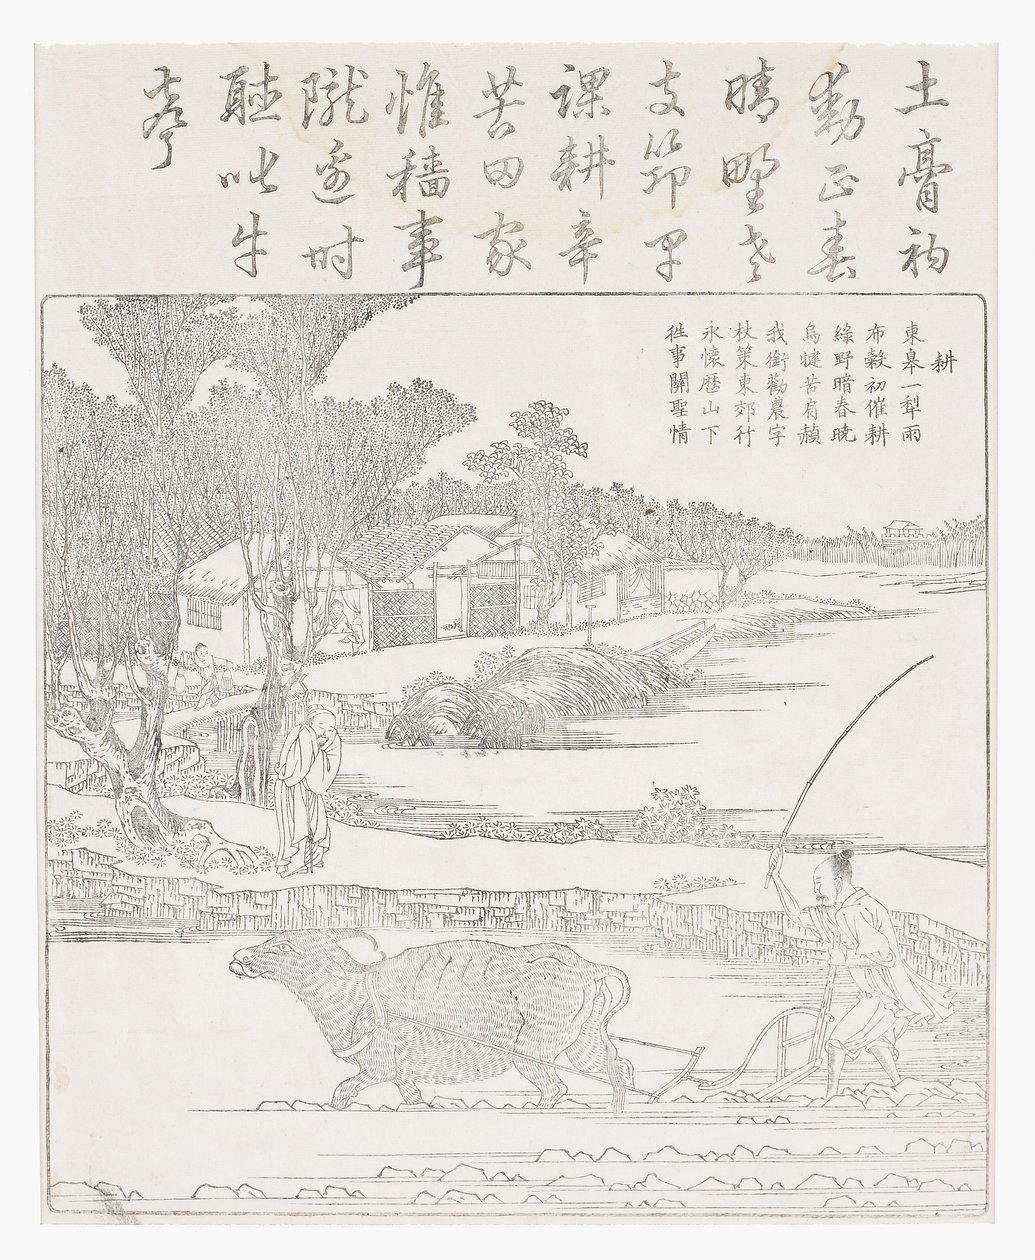 土膏初
動正春
晴野老
支筇早
課耕辛
苦田家
惟穡事
隴邊時
聽叱牛
聲
耕
東皋一犂雨
布穀初催耕
綠野暗春曉
烏犍苦肩赬
我銜勸農字
杖策東郊行
永懷歷山下
徃事關聖情